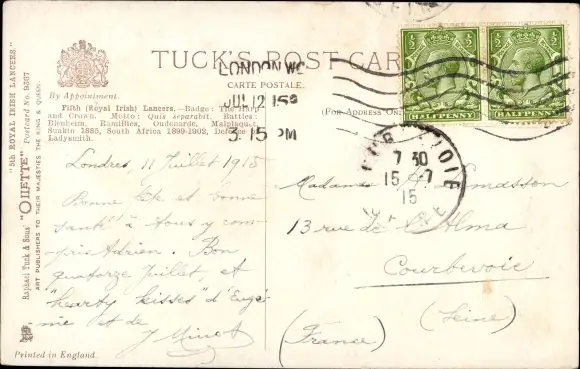 TUCK'S POST CAR
CARTE POSTALE.
(FOR ADDRESS ON
By Appointment.
Fifth (Royal Irish) Lancers.—Badge: The Harp
and Crown. Motto: Quis separabit. Battles:
Blenheim, Ramillies, Oudenarde, Malplaquet,
Suakin 1885, South Africa 1899-1902, Defence of
Ladysmith.
"5th ROYAL IRISH LANCERS."
Raphael Tuck & Sons' "OILETTE" Postcard No. 9367
ART PUBLISHERS TO THEIR MAJESTIES THE KING & QUEEN.
LONDON WC
JUL 12 15
3.15 PM
HALFPENNY
HALFPENNY
7 30
15 - 7
15
Londres, 11 Juillet 1915
Bonne fête et bonne
santé à tous y com-
pris Adrien. Bon
quatorze juillet et
"hearty kisses" d'Eugé-
nie et de
J Minot
Madame masson
13 rue de l'Alma
Courbevoie
(Seine)
(France)
Printed in England.